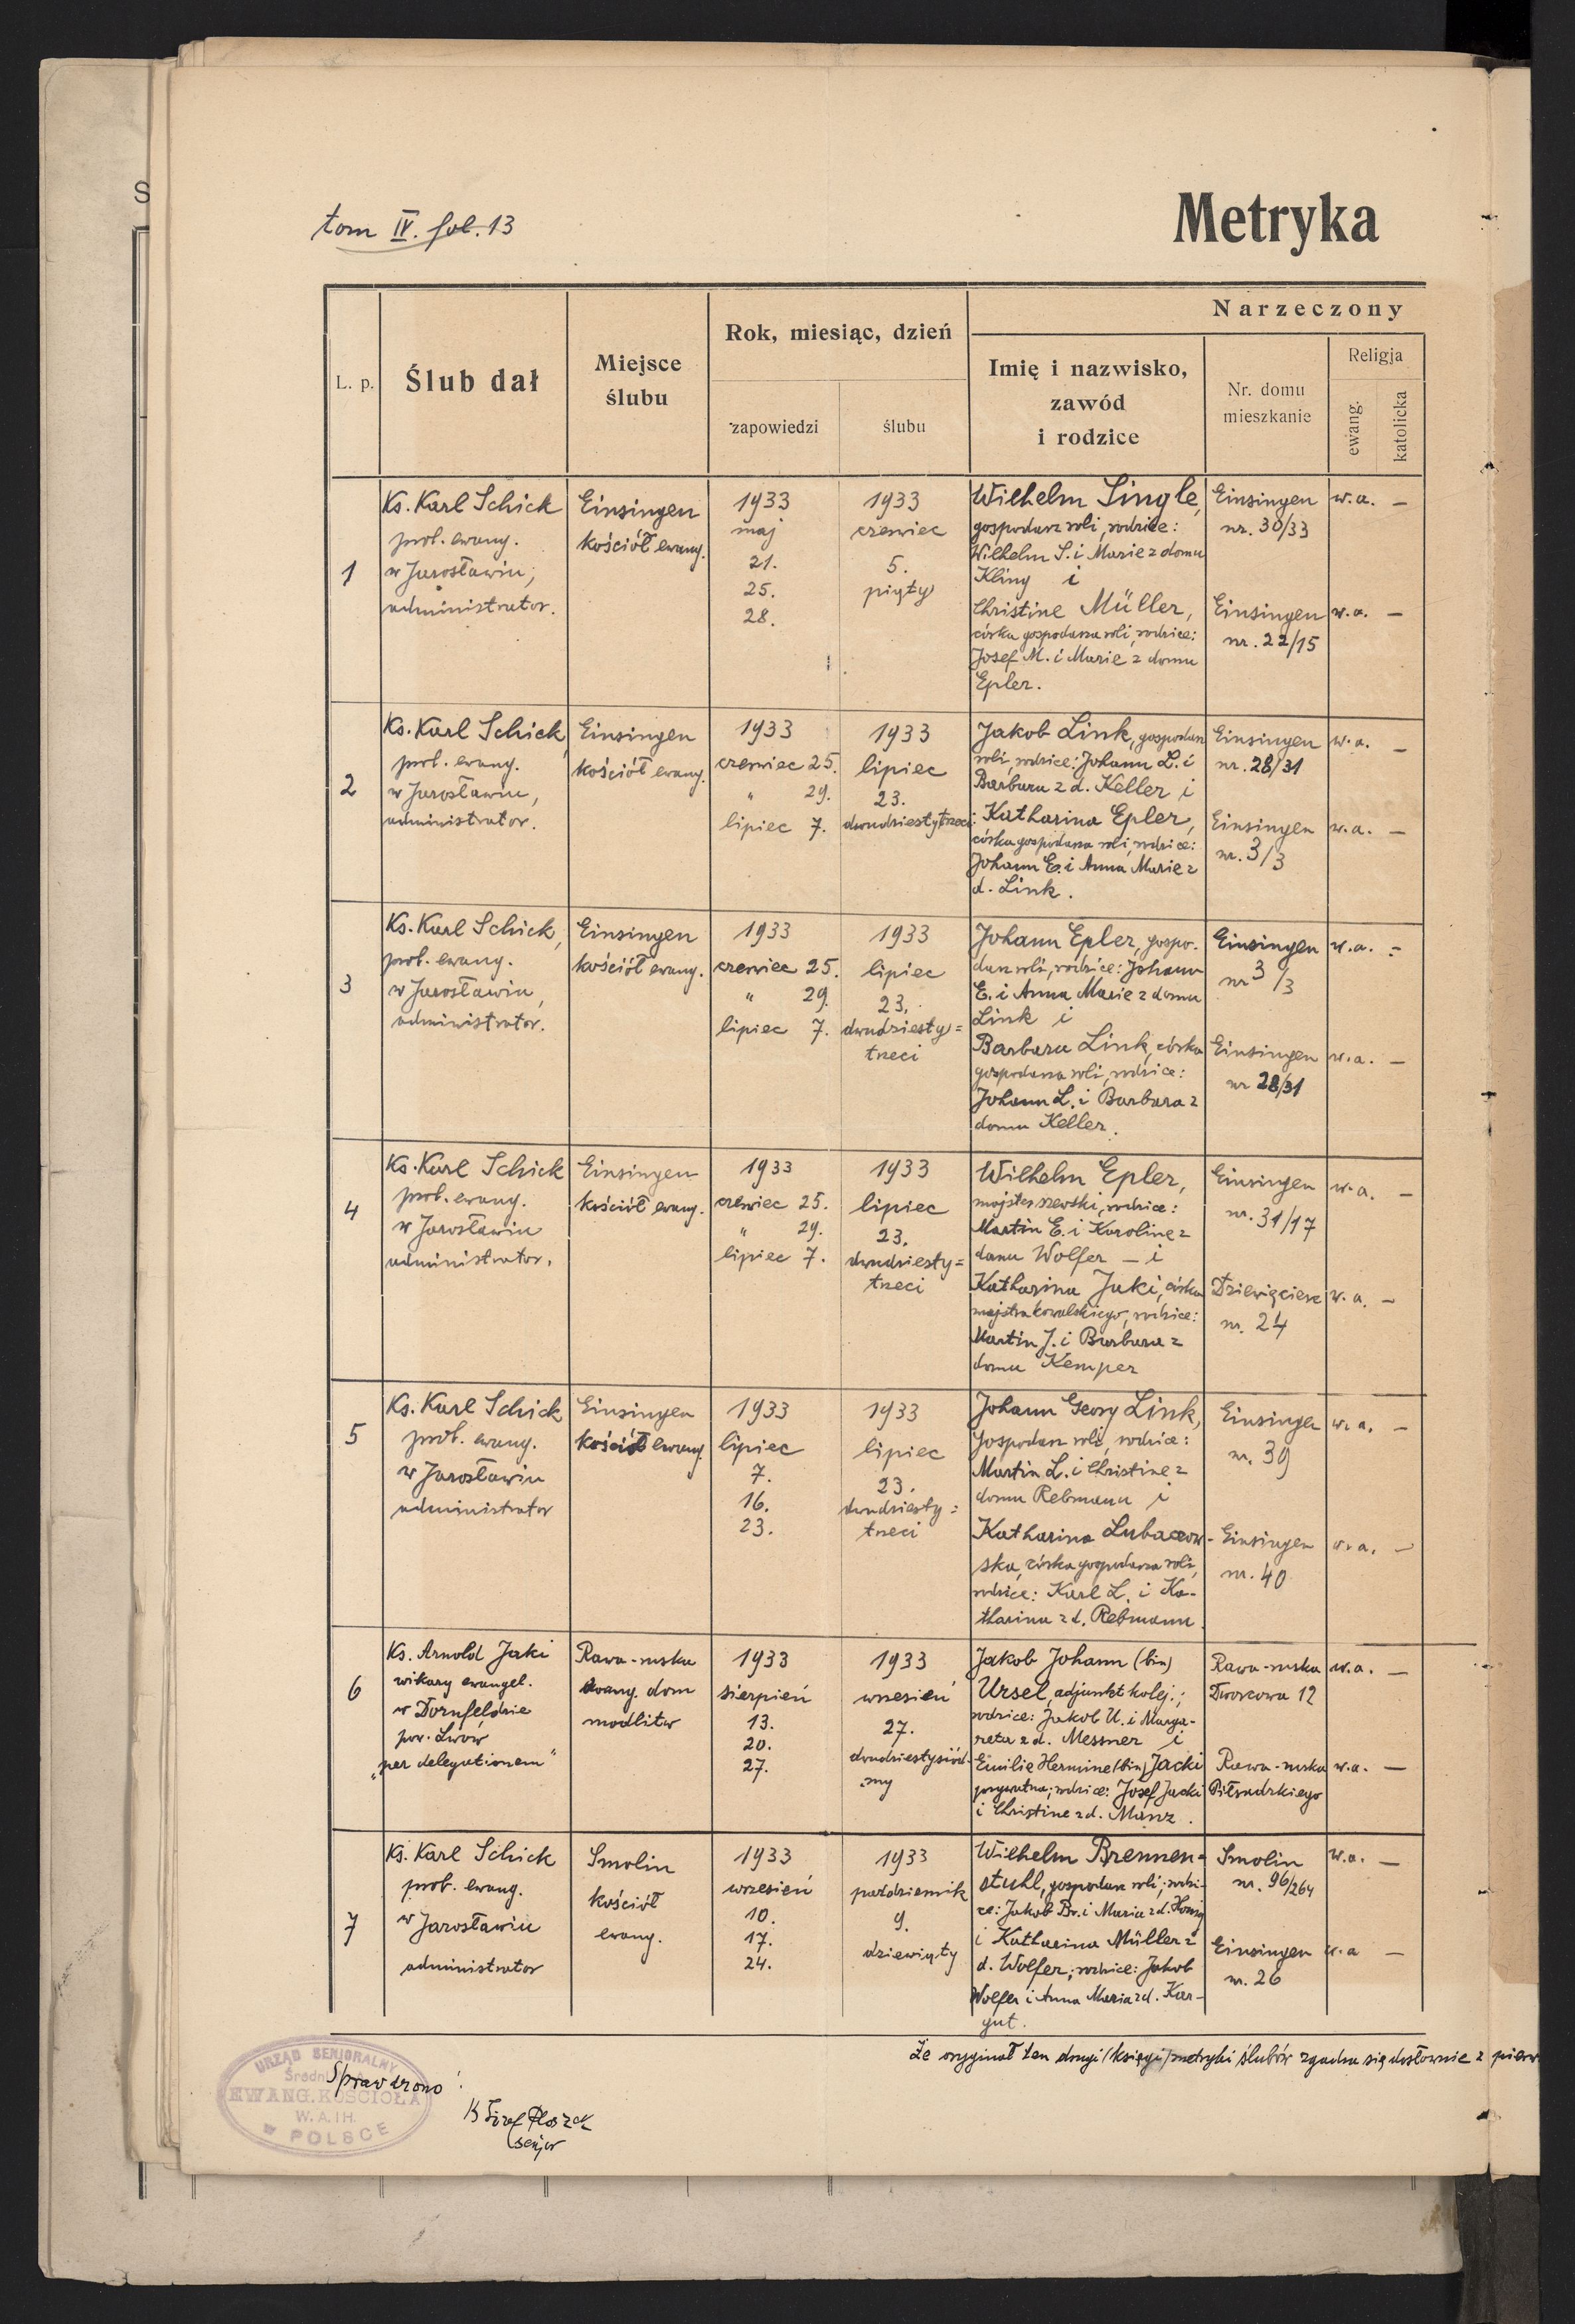 S
tom IV. fol. 13
Metryka
L. p.
Ślub dał
Miejsce
ślubu
Rok, miesiąc, dzień
zapowiedzi
ślubu
Narzeczony
Imię i nazwisko,
zawód
i rodzice
Nr. domu
mieszkanie
Religja
ewang.
katolicka
1
Ks. Karl Schick
prob. ewang.
w Jarosławiu,
administrator.
Einsingen
kościół ewang.
1933
maj
21.
25.
28.
1933
czerwiec
5.
piąty
Wilhelm Single,
gospodarz roli, rodzice:
Wilhelm S. i Marie z domu
Kling i
Christine Müller,
córka gospodarza roli, rodzice:
Josef M. i Marie z domu
Epler.
Einsingen
nr. 30/33
Einsingen
nr. 22/15
w.a. —
w.a. —
2
Ks. Karl Schick,
prob. ewang.
w Jarosławiu,
administrator.
Einsingen
kościół ewang.
1933
czerwiec 25.
" 29.
lipiec 7.
1933
lipiec
23.
dwudziestytrzeci
Jakob Link, gospodarz
roli, rodzice: Johann L. i
Barbara z d. Keller i
Katharina Epler,
córka gospodarza roli, rodzice:
Johann E. i Anna Marie z
d. Link.
Einsingen
nr. 28/31
Einsingen
nr. 3/3
w.a. —
w.a. —
3
Ks. Karl Schick,
prob. ewang.
w Jarosławiu,
administrator.
Einsingen
kościół ewang.
1933
czerwiec 25.
" 29.
lipiec 7.
1933
lipiec
23.
dwudziesty=
trzeci
Johann Epler, gospo-
darz roli, rodzice: Johann
E. i Anna Marie z domu
Link i
Barbara Link, córka
gospodarza roli, rodzice:
Johann L. i Barbara z
domu Keller.
Einsingen
nr 3/3
Einsingen
nr 28/31
w.a. =
w.a. —
4
Ks. Karl Schick
prob. ewang.
w Jarosławiu
administrator.
Einsingen
kościół ewang.
1933
czerwiec 25.
" 29.
lipiec 7.
1933
lipiec
23.
dwudziesty=
trzeci
Wilhelm Epler,
majster szewski, rodzice:
Martin E. i Karoline z
domu Wolfer — i
Katharina Jaki, córka
majstra kowalskiego, rodzice:
Martin J. i Barbara z
domu Kemper
Einsingen
nr. 31/17
Dziewięcierz
nr. 24
w.a. —
w.a. —
5
Ks. Karl Schick
prob. ewang.
w Jarosławiu
administrator
Einsingen
kościół ewang.
1933
lipiec
7.
16.
23.
1933
lipiec
23.
dwudziesty=
trzeci
Johann Georg Link,
gospodarz roli, rodzice:
Martin L. i Christine z
domu Rebmann i
Katharina Lubaczow-
ska, córka gospodarza roli,
rodzice: Karl L. i Ka-
tharina z d. Rebmann.
Einsingen
nr. 39
Einsingen
nr. 40
w.a. —
w.a. —
6
Ks. Arnold Jaki
wikary ewangel.
w Dornfeldzie
pow. Lwów
"per delegationem"
Rawa-ruska
ewang. dom
modlitw
1933
sierpień
13.
20.
27.
1933
wrzesień
27.
dwudziestysiód-
my
Jakob Johann (bin)
Ursel, adjunkt kolej.;
rodzice: Jakob U. i Marga-
reta z d. Messner i
Emilie Hermine (bin) Jacki
prywatna; rodzice: Josef Jacki
i Christine z d. Manz.
Rawa-ruska
Dworcowa 12
Rawa-ruska
Piłsudzkiego
w.a. —
w.a. —
7
Ks. Karl Schick
prob. ewang.
w Jarosławiu
administrator
Smolin
kościół
ewang.
1933
wrzesień
10.
17.
24.
1933
październik
9.
dziewiąty
Wilhelm Brennen=
stuhl, gospodarz roli; rodzi-
ce: Jakob Br. i Maria z d. König
i Katharina Müller z
d. Wolfer; rodzice: Jakob
Wolfer i Anna Maria z d. Kar-
gut.
Smolin
nr. 96/264
Einsingen
nr. 26
w.a. —
w.a —
Że oryginał ten drugi (księgi) metryki ślubów zgadza się dosłownie z pierw
URZĄD SENJORALNY
EWANG. KOŚCIOŁA
W. A. I H.
W POLSCE
Sprawdzono:
senjor